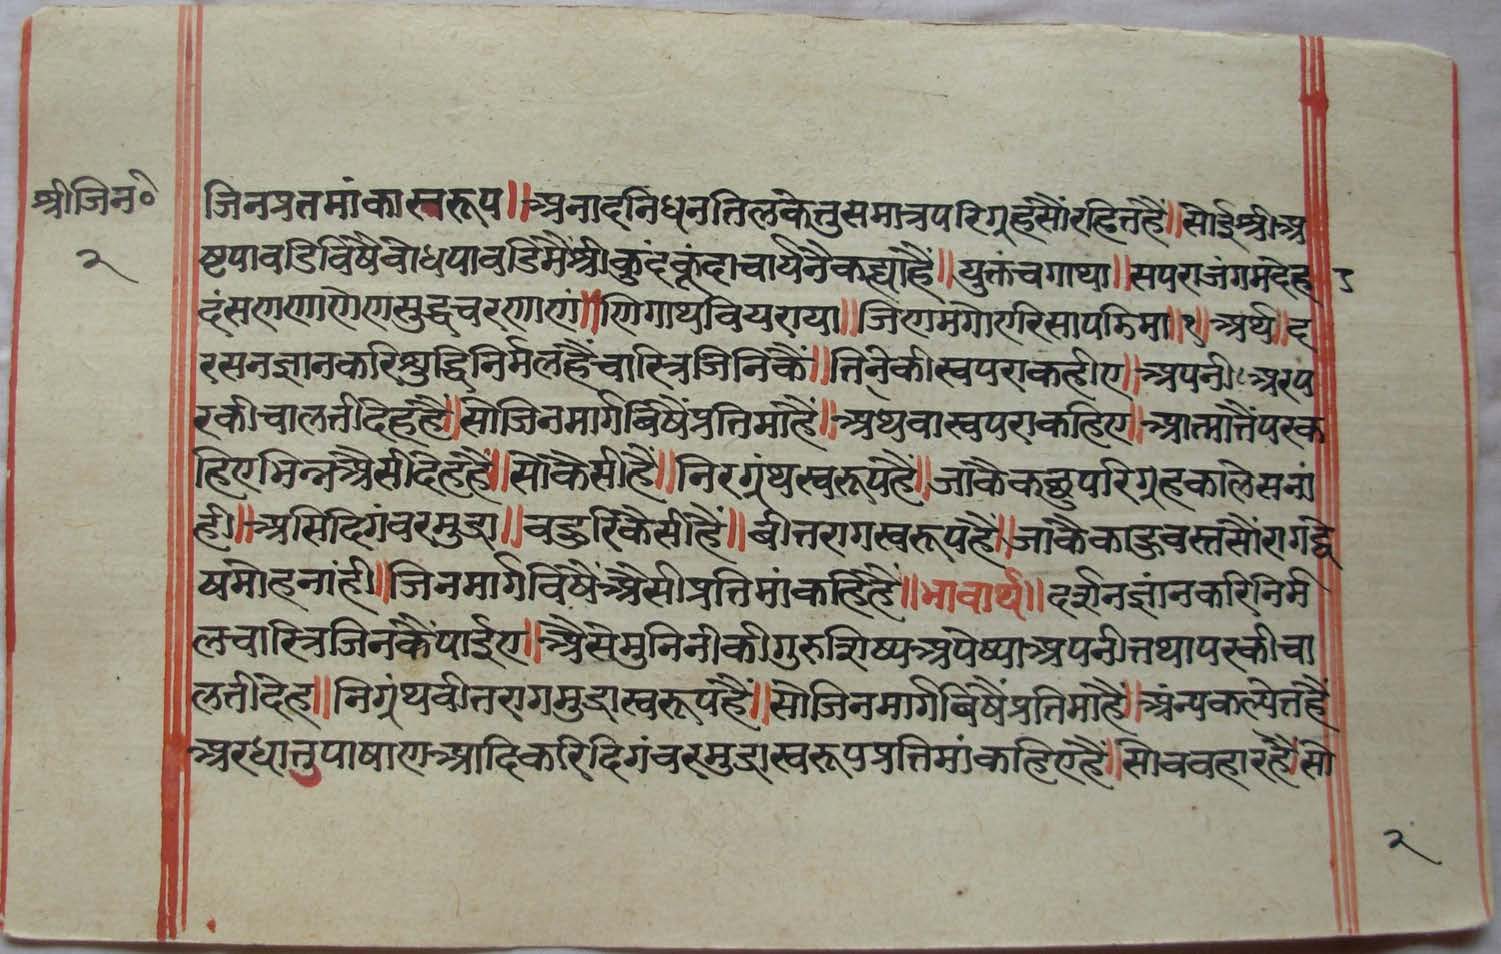 श्रीजिन॰
२
जिनप्रतमांकास्वरूप॥अनादनिधनतिलकेतुसमात्रपरिग्रहसौंरहितहैं॥सोईश्रीअ
ष्टपावडिविषैबोधपावडिमैंश्रीकुंदकूंदाचार्यनैकह्याहैं॥युक्तंचगाथा॥सपराजंगमदेह ऽ
दंसणणाणेणसुद्धचरणाणं॥णिगाथवियराया॥जिणमगेएरिसापडिमा॥१॥अर्थ॥द
रसनज्ञानकरिशुद्धिनिर्मलहैंचारित्रजिनिकैं॥तिनेकीस्वपराकहीए॥अपनीअरप
रकीचालतीदेहहैं॥सोजिनमार्गविषैंप्रतिमाहैं॥अथवास्वपराकहिए॥आत्मातैंपरक
हिएभिन्नअैसीदेहहैं॥सोकैसीहैं॥निरग्रंथस्वरूपहैं॥जाकैकछुपरिग्रहकालेसनां
ही॥असिदिगंबरमुद्रा॥बहुरिकैसीहैं॥बीतरागस्वरूपहैं॥जाकैकाहुवस्तसौंरागद्वे
षमोहनांही॥जिनमार्गविषैंअैसीप्रतिमांकहिहैं॥भावार्थ॥दर्शनज्ञांनकरिनिर्म
लचारित्रजिनकैंपाईए॥अैसेमुनिनीकीगुरुशिष्यअपेष्याअपनीतथापरकीचा
लतीदेह॥निग्रंथवीतरागमुद्रास्वरूपहैं॥सोजिनमार्गविषैंप्रतिमाहैं॥अंन्यकल्पेतहैं
अरधातुपाषाणआदिकरिदिगंबरमुद्रास्वरूपप्रतिमांकहिएहैं॥सोववहारहैं॥सो
२